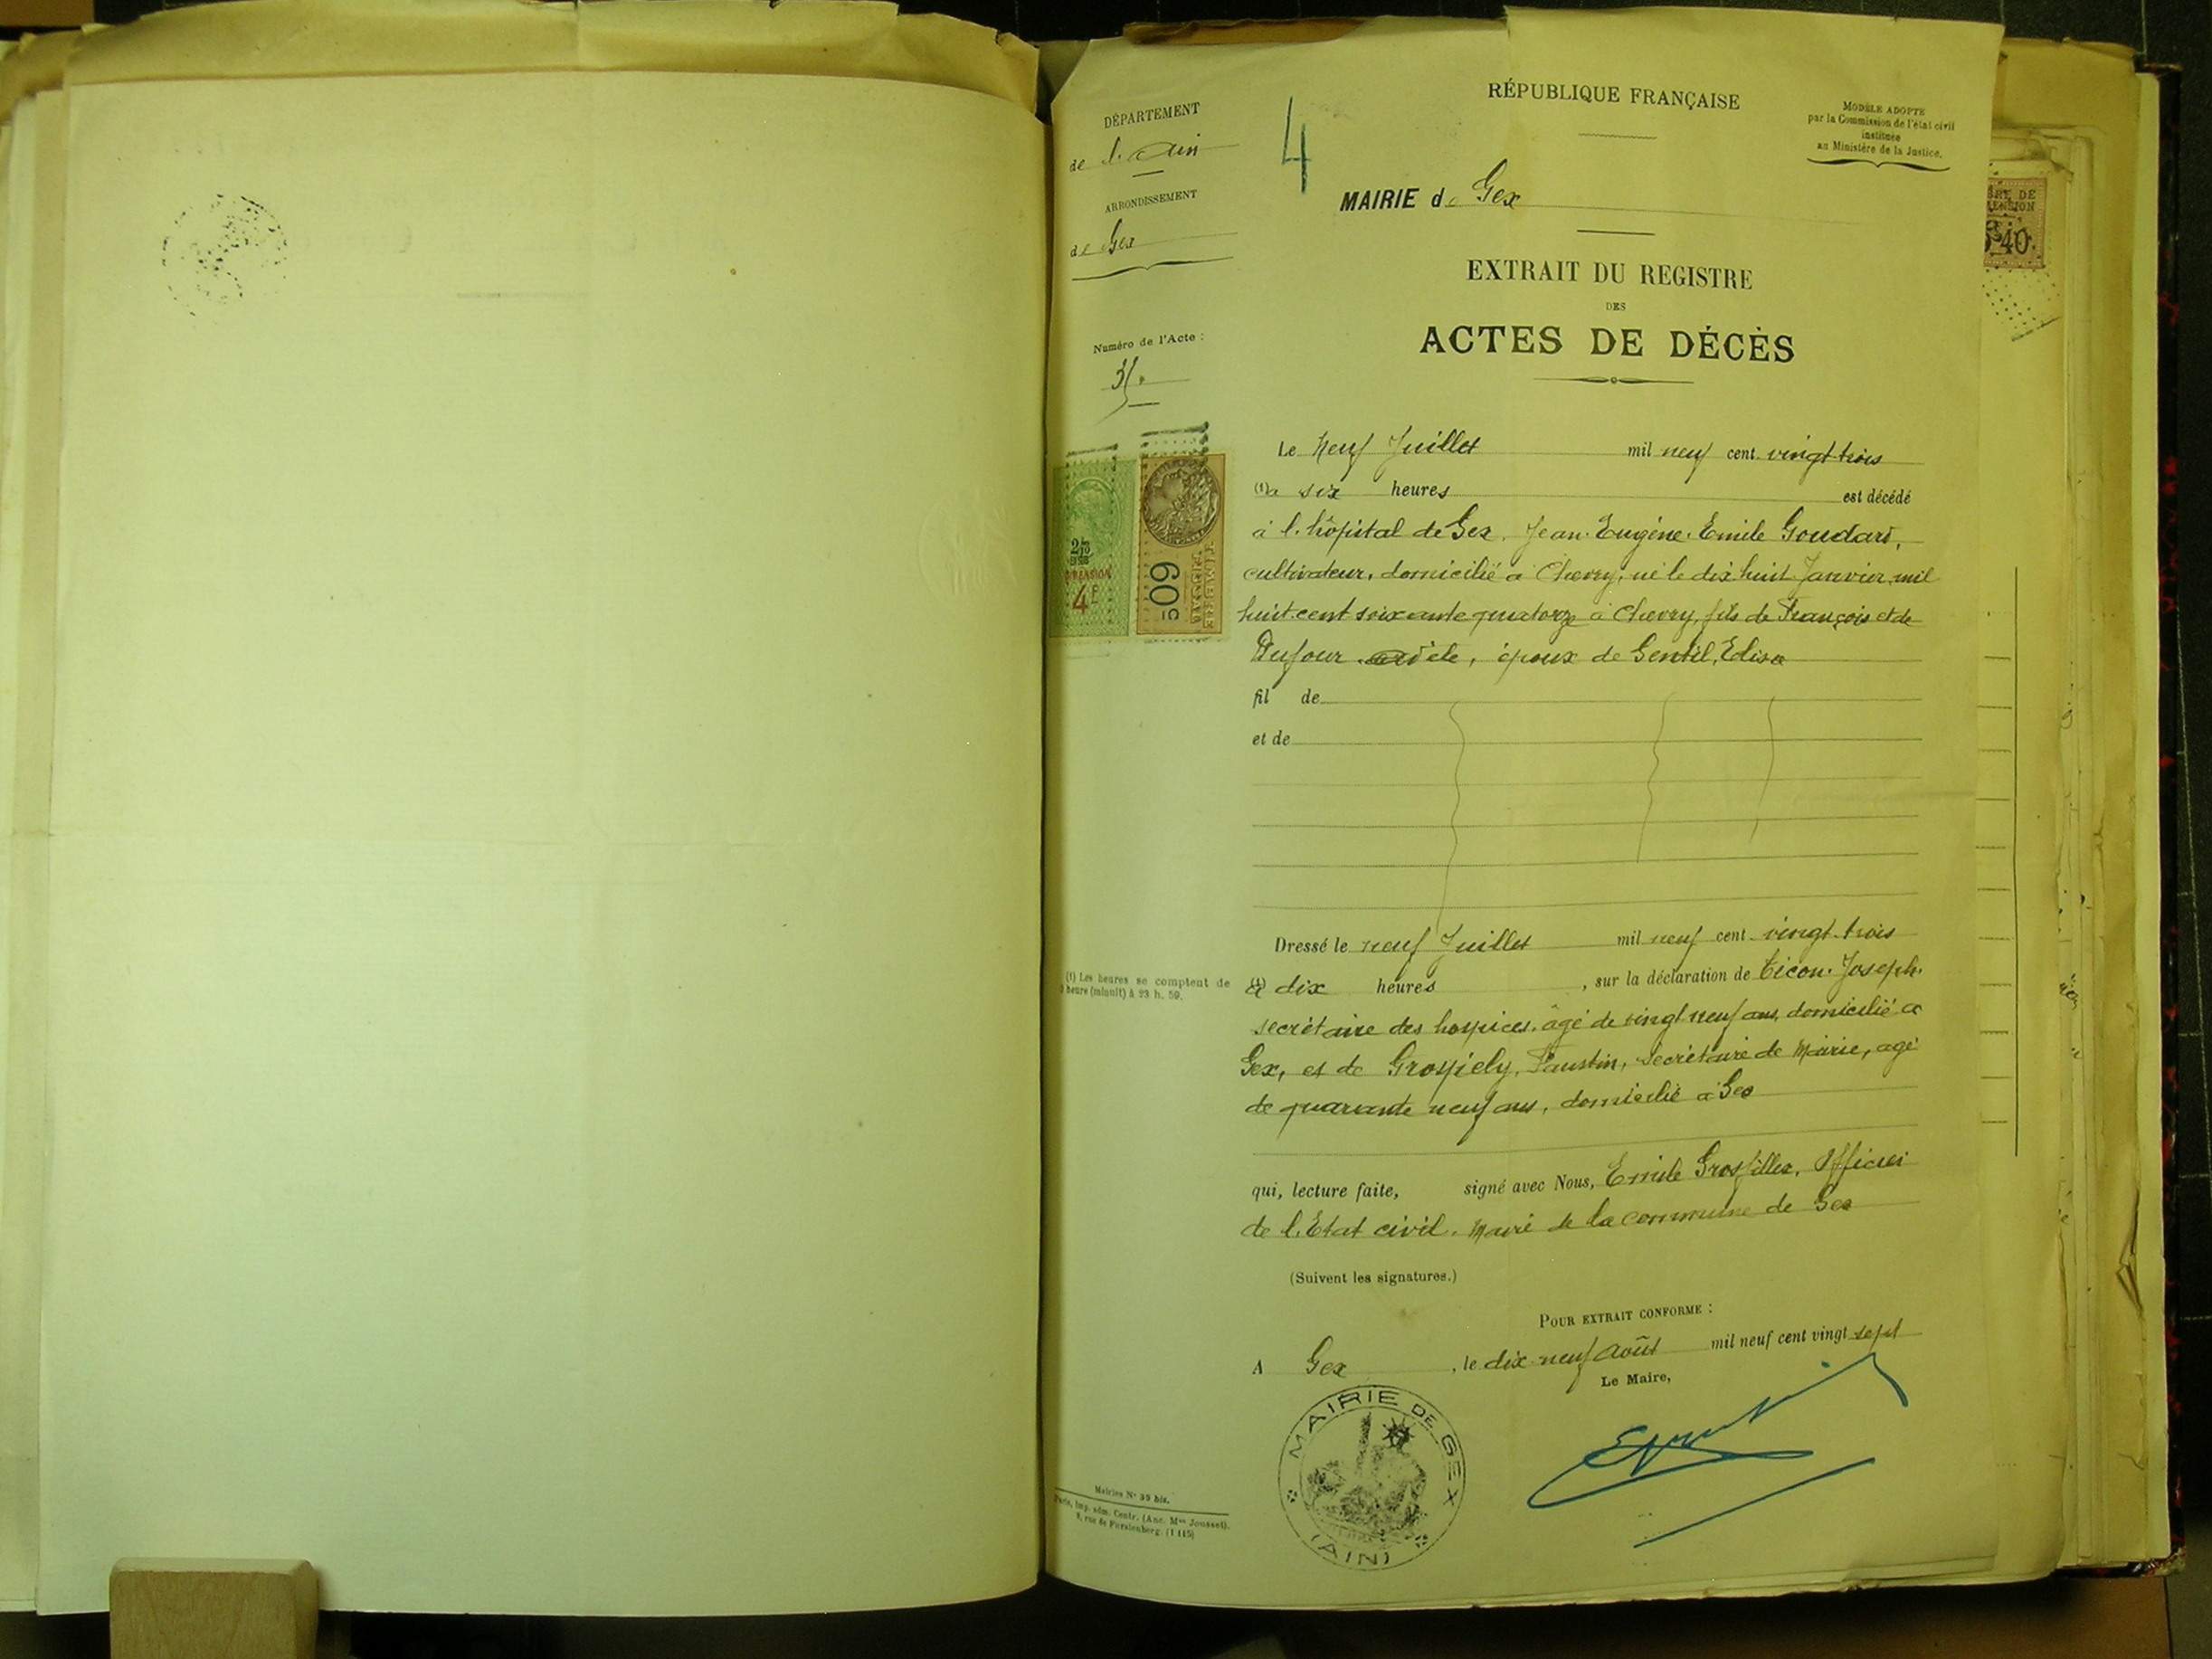 DÉPARTEMENT
de l'Ain
ARRONDISSEMENT
de Gex
Numéro de l'Acte :
4
RÉPUBLIQUE FRANÇAISE
MODÈLE ADOPTÉ
par la Commission de l'état civil
instituée
au Ministère de la Justice.
MAIRIE de Gex
EXTRAIT DU REGISTRE
DES
ACTES DE DÉCÈS
Le Neuf Juillet mil neuf cent vingt trois
(1) à six heures est décédé
à l'hôpital de Gex, Jean Eugène Emile Goudard,
cultivateur, domicilié à Chevry, né le dix huit Janvier mil
huit cent soixante quatorze à Chevry, fils de François et de
Dufour Adèle, époux de Gentil, Elisa
fil de
et de
Dressé le neuf Juillet mil neuf cent vingt trois
(1) à dix heures, sur la déclaration de Joseph,
secrétaire des hospices, âgé de vingt neuf ans, domicilié à
Gex, et de Faustin, secrétaire de Mairie, agé
de quarante neuf ans, domicilié à Gex
qui, lecture faite, signé avec Nous, Emile Grosfillex, Officier
de l'Etat civil. Maire de la commune de Gex
(Suivent les signatures.)
POUR EXTRAIT CONFORME :
A Gex, le dix-neuf Août mil neuf cent vingt sept
Le Maire,
MAIRIE DE GEX
(AIN)
(1) Les heures se comptent de
heure (minuit) à 23 h. 59.
Mairies N° 39 bis.
Paris, Imp. adm. Centr. (Anc. Mon Jousset).
8, rue de Furstenberg. (1 115)
4F
60
40